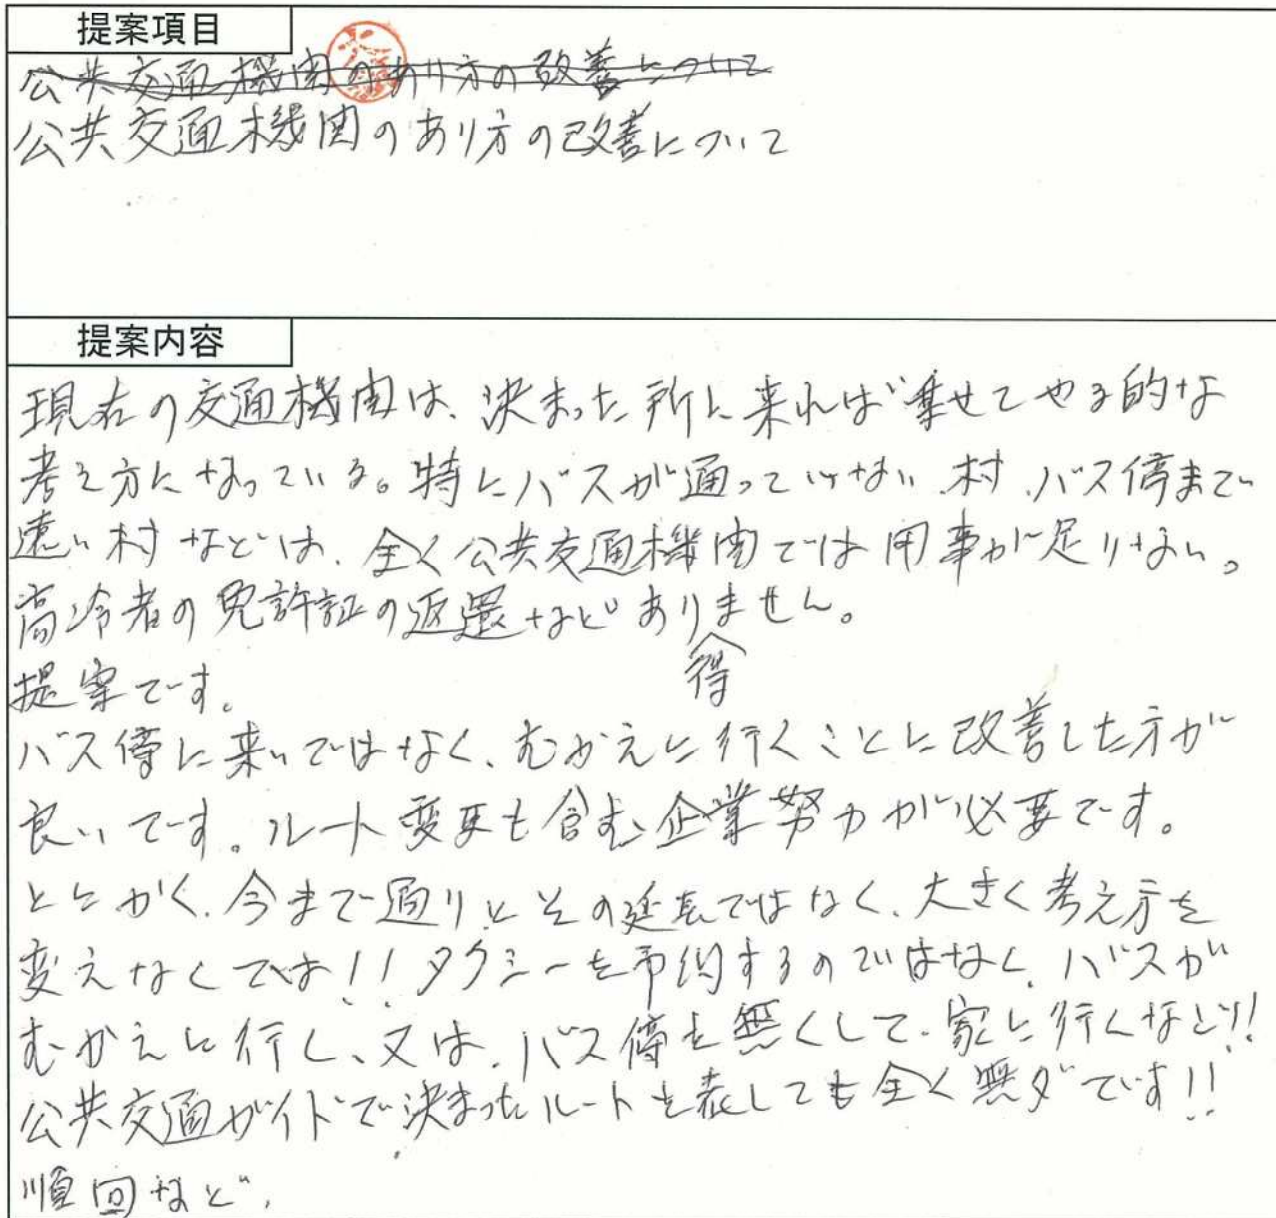 提案項目
公共交通機関のあり方の改善について
公共交通機関のあり方の改善について
提案内容
現在の交通機関は、決まった所に来れば乗せてやる的な
考え方になっている。特にバスが通っていない村、バス停まで
遠い村などは、全く公共交通機関では用事が足りない。
高冷者の免許証の返還などありません。
得
提案です。
バス停に来いではなく、むかえに行くことに改善した方が
良いです。ルート変更も含む企業努力が必要です。
とにかく、今まで通りとその延長ではなく、大きく考え方を
変えなくては!!タクシーを予約するのではなく、バスが
むかえに行く、又は、バス停を無くして、家に行くなど!!
公共交通ガイドで決まったルートを表しても全く無ダです!!
順回など、